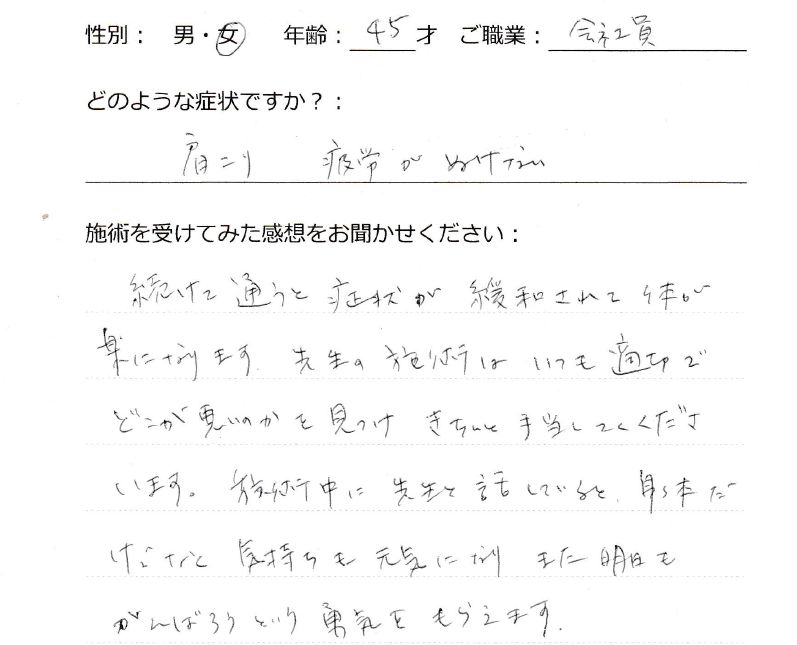 性別： 男・女 年齢：45才 ご職業：会社員
どのような症状ですか？：
肩こり 疲労が ぬけない
施術を受けてみた感想をお聞かせください：
続けて通うと症状が 緩和されて 体が
楽になります。先生の施術は いつも適切で
どこが悪いのかを見つけ きちんと手当してくださ
います。施術中に先生と話していると、身体だ
けでなく 気持ちも元気になり また明日も
がんばろうという勇気をもらえます。